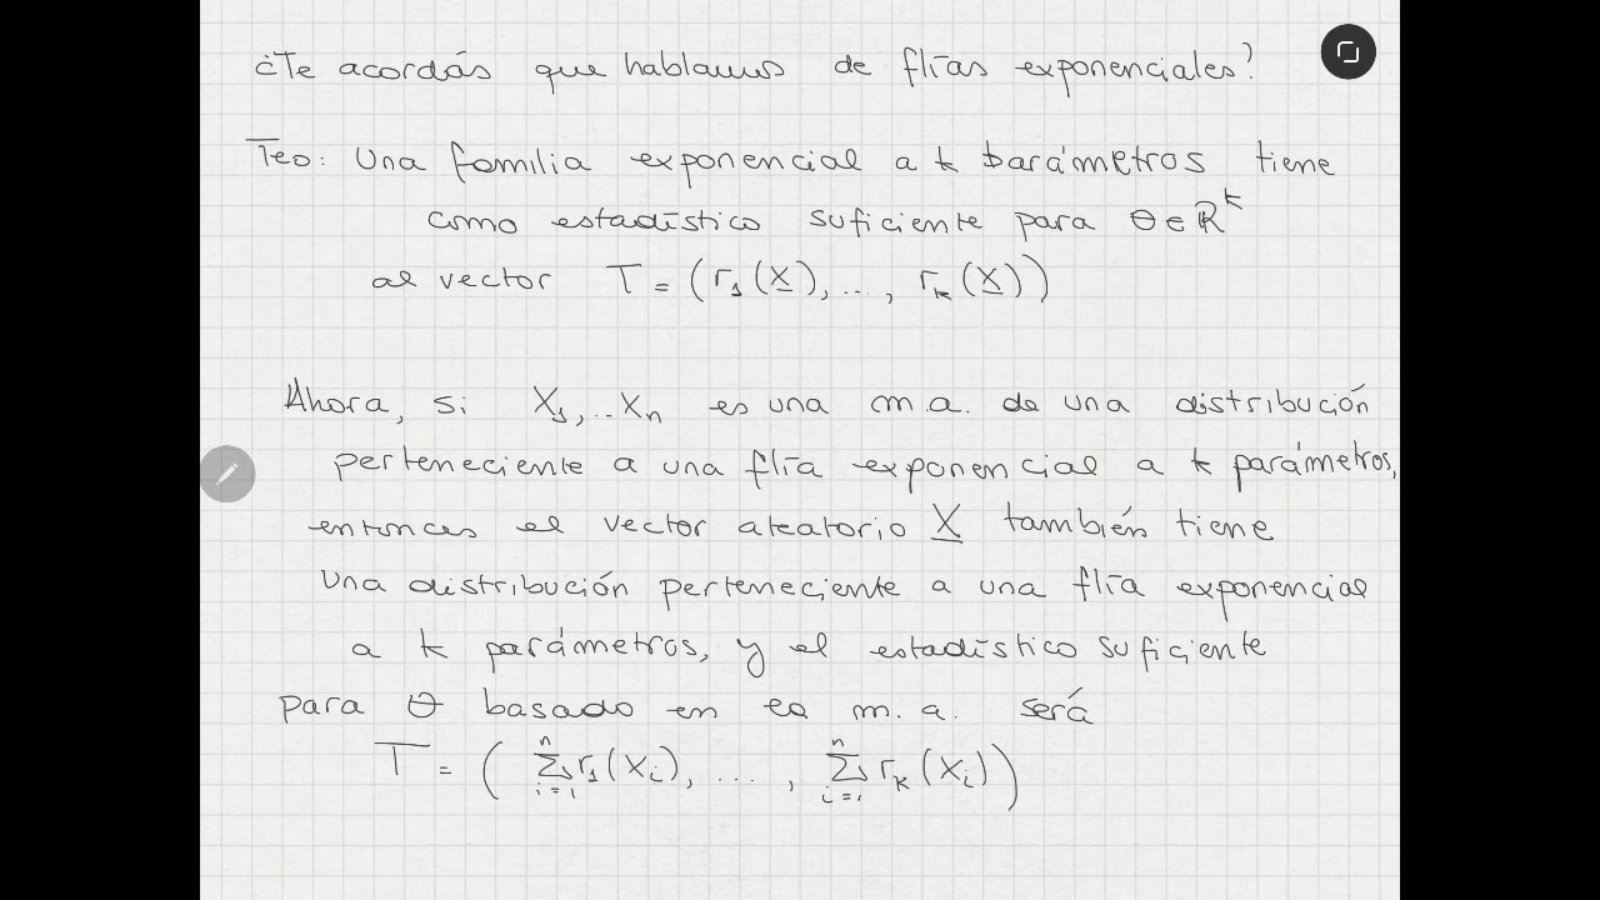 ¿Te acordás que hablamos de flías exponenciales?
Teo: Una familia exponencial a k parámetros tiene
como estadístico suficiente para θ ∈ ℝ^k
al vector T = (r₁(X), ..., r_k(X))
Ahora, si X₁, .. X_n es una m.a. de una distribución
perteneciente a una flía exponencial a k parámetros,
entonces el vector aleatorio X también tiene
una distribución perteneciente a una flía exponencial
a k parámetros, y el estadístico suficiente
para θ basado en la m. a. será
T = ( ∑_{i=1}^{n} r₁(X_i), ... , ∑_{i=1}^{n} r_k(X_i) )